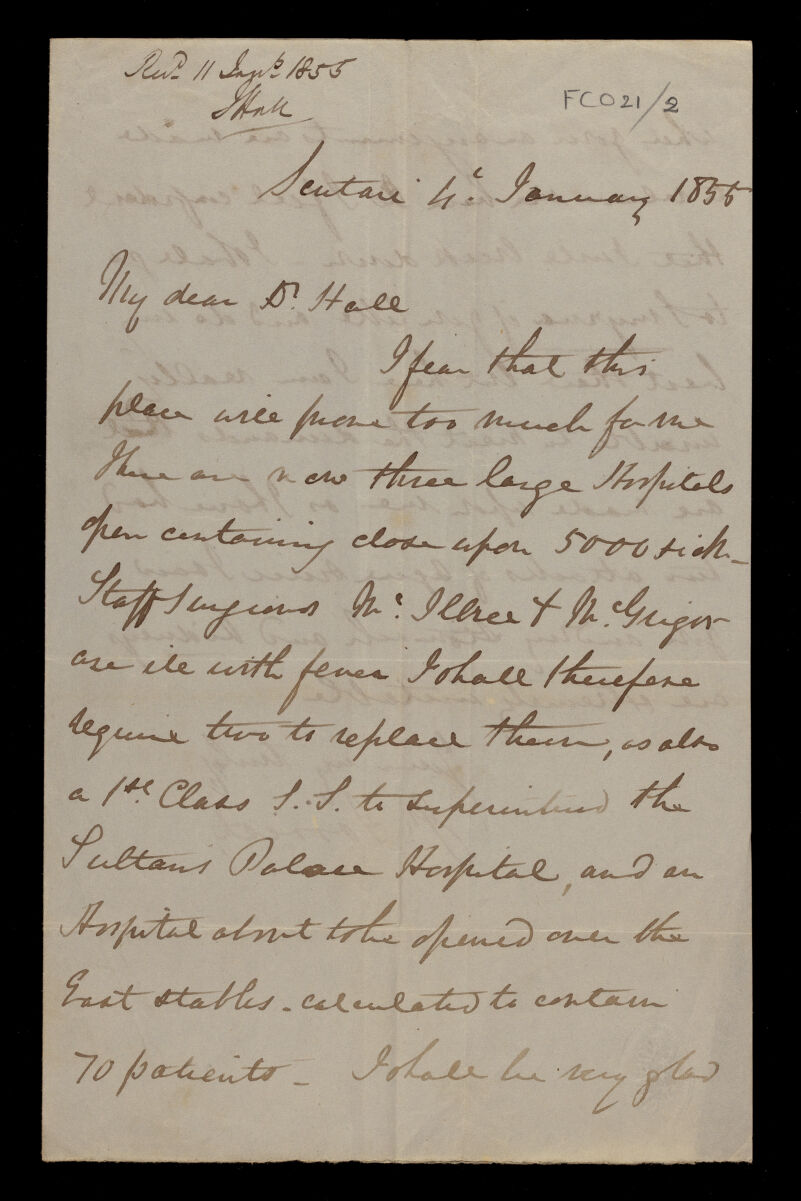 Recd. 11 Jany. 1855
J Hall
FCO21/2
Scutari 4th. January 1855
My dear Dr. Hall
I fear that this
place will prove too much for me
There are now three large Hospitals
open containing close upon 5000 sick_
Staff Surgeons Mc. Illree & McGrigor
are ill with fever I shall therefore
require two to replace them, as also
a 1st. Class S.S. to superintend the
Sultans Palace Hospital, and an
Hospital about to be opened over the
East stables - calculated to contain
70 patients _ I shall be very glad